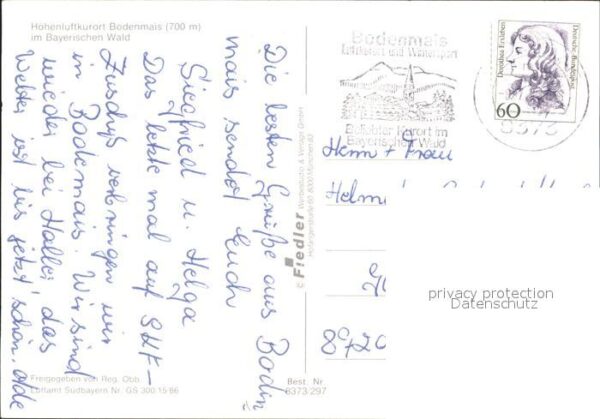 Höhenluftkurort Bodenmais (700 m)
im Bayerischen Wald
Die besten Grüße aus Boden
mais sendet Euch
Siegfried u. Helga
Das letzte mal auf SHK-
Zuschuß verbringen wir
in Bodemais. Wir sind
wieder bei Haller, das
Wetter ist bis jetzt schön. Ade
Freigegeben von Reg. Obb.
Luftamt Südbayern Nr. GS 300 15 66
Best. Nr.
8373/297
© Fiedler Werbestudio & Verlags GmbH
8000 München 83
Bodenmais
Luftkurort und Wintersport
Beliebter Kurort im
Bayerischen Wald
8373
Dorothea Erxleben
Deutsche Bundespost
60
Herrn + Frau
Helm
8720
privacy protection
Datenschutz